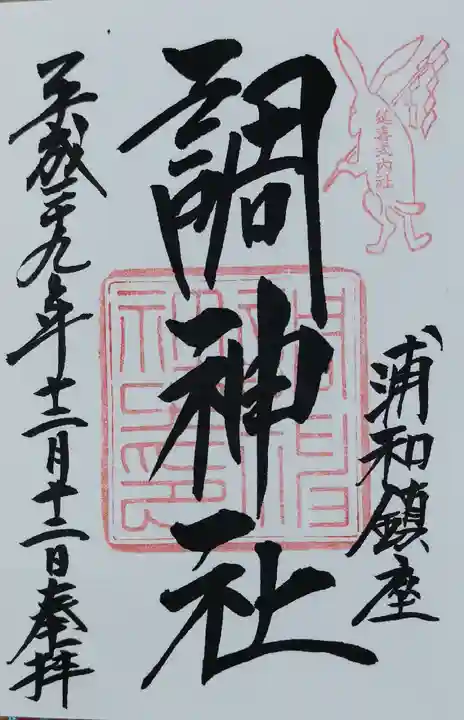 延喜式内社
浦和鎮座
調神社
平成二十九年十二月十二日奉拝